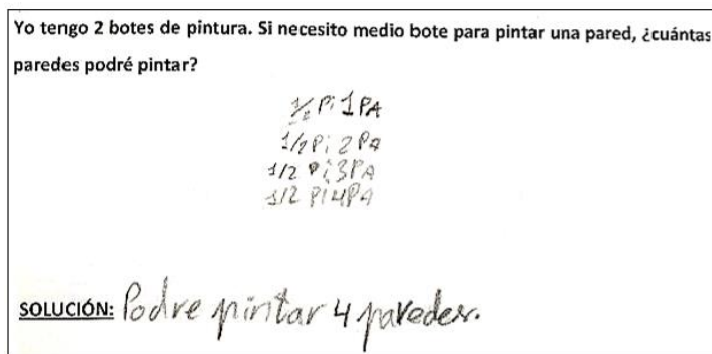 Yo tengo 2 botes de pintura. Si necesito medio bote para pintar una pared, ¿cuántas
paredes podré pintar?
1/2 Pi 1 PA
1/2 Pi 2 Pa
1/2 Pi 3 PA
1/2 Pi 4 PA
SOLUCIÓN: Podre pintar 4 paredes.